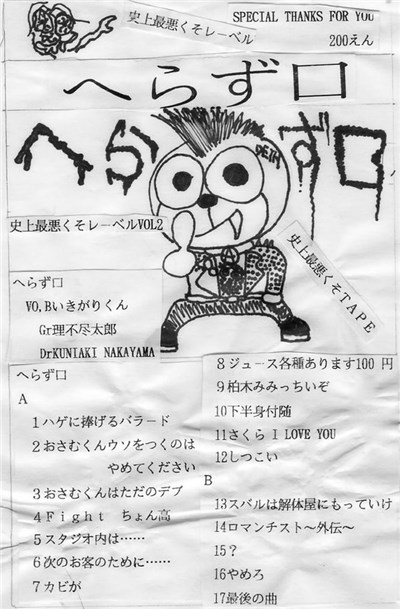 史上最悪くそレーベル
SPECIAL THANKS FOR YOU
200えん
へらず口
へらず口
DEIH
史上最悪くそレーベルVOL2
史上最悪くそTAPE
へらず口
VO,Bいきがりくん
Gr理不尽太郎
DrKUNIAKI NAKAYAMA
へらず口
A
1ハゲに捧げるバラード
2おさむくんウソをつくのは
やめてください
3おさむくんはただのデブ
4Fight ちょん高
5スタジオ内は……
6次のお客のために……
7カビが
8ジュース各種あります100円
9柏木みみっちいぞ
10下半身付随
11さくら I LOVE YOU
12しつこい
B
13スバルは解体屋にもっていけ
14ロマンチスト～外伝～
15？
16やめろ
17最後の曲